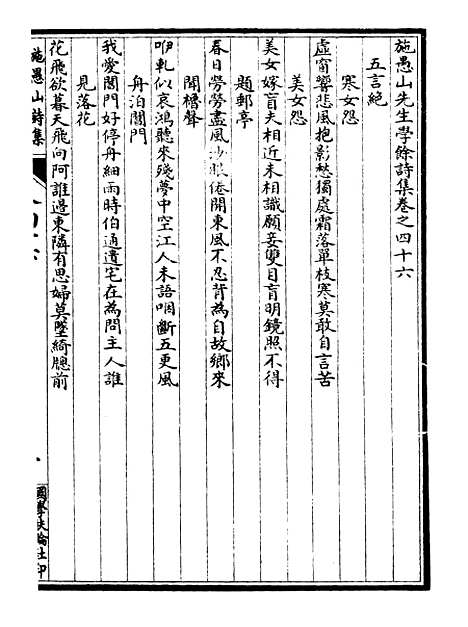 施愚山先生學餘詩集卷之四十六
五言絕
寒女怨
虛甯響悲風抱影愁獨處霜落單枝寒莫敢自言苦
美女怨
美女嫁盲夫相近未相識願妾雙目盲明鏡照不得
題郵亭
春日勞勞盡風沙眼倦開東風不忍背為自故鄉來
聞櫓聲
咿軋似哀鴻聽來殘夢中空江人未語咽斷五更風
舟泊閶門
我愛閶門好停舟細雨時伯通遺宅在為問主人誰
見落花
花飛欲暮天飛向阿誰邊東隣有思婦莫墜綺牕前
施愚山詩集
國學扶輪社印